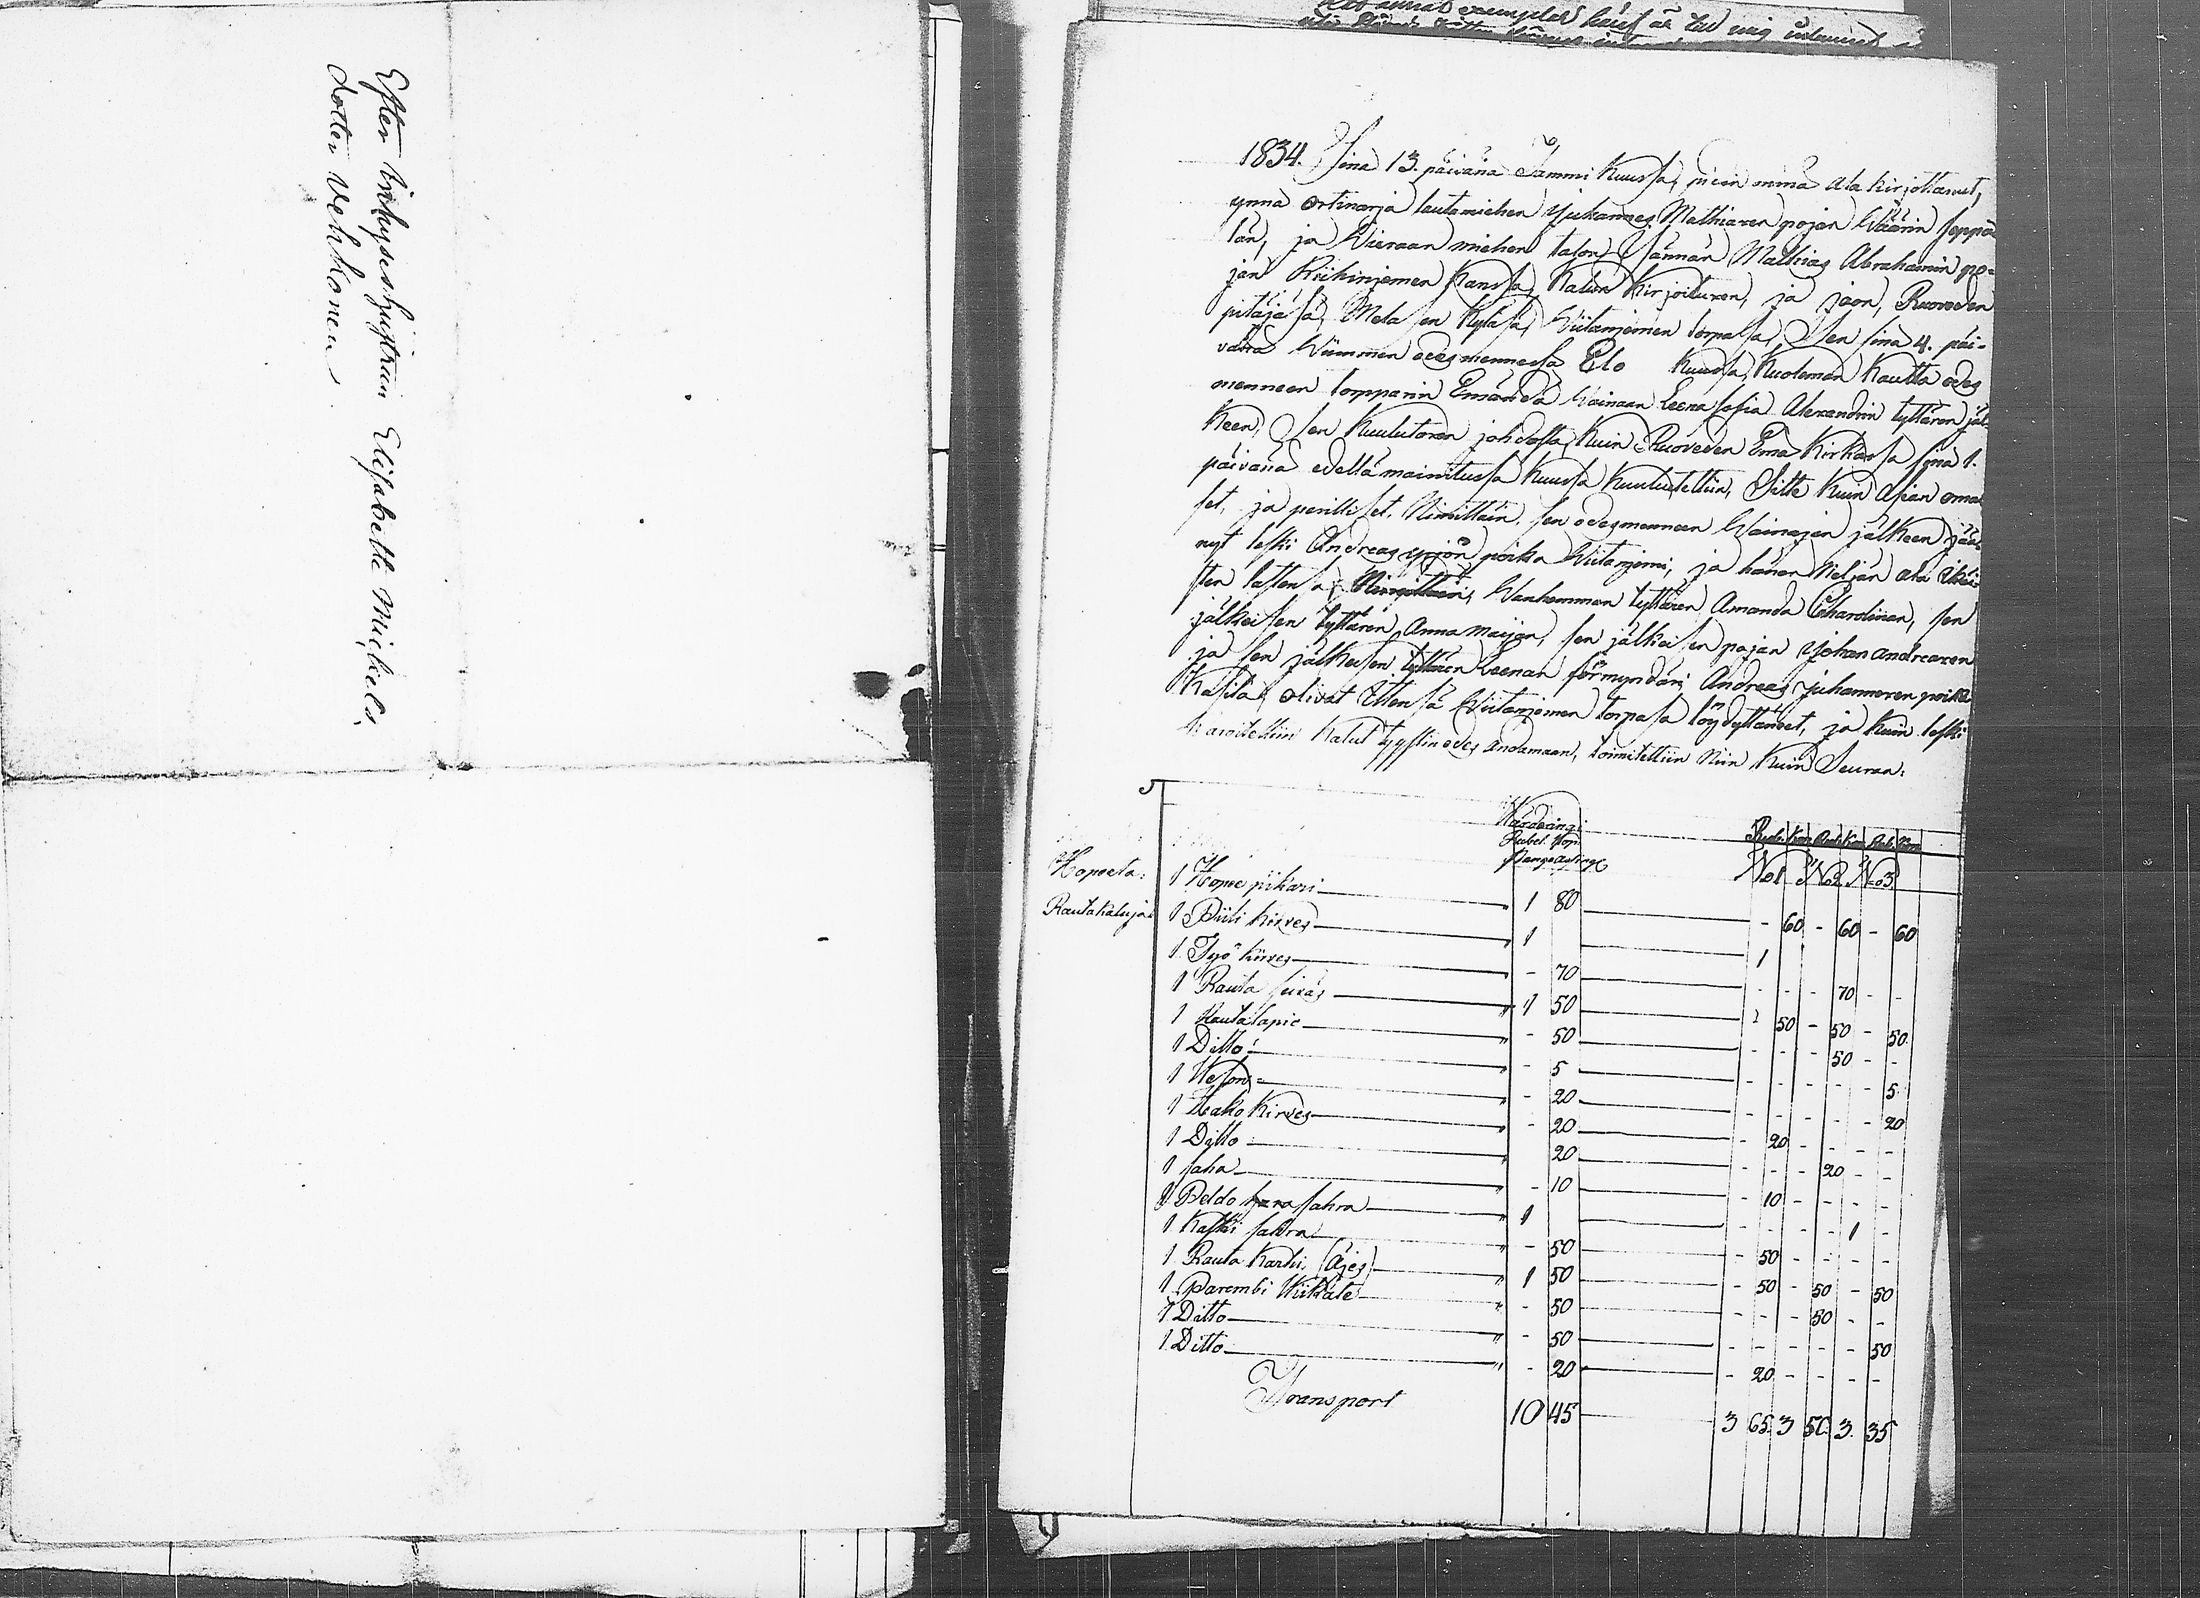 Efter Inhyseshjonet Elisabetha Mickels
dotter Vehkonen
exemplar häraf är till mig
1834. Sinä 13. päivänä Tammi Kuussa, pidin minä ala kirjottanut,
ynnä ortinarja lautamiehen Juhannes Mathiaxen pojan Väärin Seppä-
län, ja Vieraan miehen talon Jännän Mathias Abrahamin po-
jan Riihinjemen Kanssa, Kalun Kirjoituxen, ja jaon, Ruoveden
pitäjäsä, Mela sen Kyläsä, Viitanjemen torpassa, Sen sinä 4. päi-
vänä Viimmen edesmennessä Elo Kuussa, Kuoleman Kautta edes
menneen torpparin Emändä Vainaan Leena Sofia Alexandrin tyttären jäl-
Keen, Sen Kuulutoxen johdosta, Kuin Ruoveden Emä Kirkossa sinä 1.
päivänä edellä mainitussa Kuussa Kuulutettiin, Sitte Kuin Asian oma
set, ja perilliset, Nimittäin, sen edesmenneen Vainajan jälkeen jää-
nyt leski Andreas yrjön poika Viitanjemi, ja hänen Neljän ala ikäi
sten lasten sa, Vanhemman tyttären Amanda Chardinan, sen
jälkeisen tyttären Anna Maijan, sen jälkeisen pojan Johan andreaxen
ja sen jälkeisen tyttären Leenan förmyndäri, Andreas Juhannexen poika
Kasila, olivat Ittensä Viitanjemen torpasa löydyttäneet, ja Kuin leski
Kalut tyystin edes andamaan, toimitettiin Niin Kuin Seuraa:
Wärderingi
Rubel. Kop.
Rubl. Kop. Rubl. Kop. Rub. Kop.
No1 No2 No3
Hopeeta: 1 Hopee pikari " 1 80 - 60 - 60 - 60
Rautakaluja: 1 Piili kirves " 1 1
1 Työ kirves " - 70 - - - 70 - -
1 Rauta seiväs " 1 50 - 50 - 50 - 50
1 Rautalapio " - 50 - - - 50 - -
1 Ditto " - 5 - - - - - 5
1 " - 20 - - - - - 20
1 Hako Kirves " - 20 - 20 - - - -
1 Ditto " 20 - - - 20 - -
1 saha " - 10 - 10 - - - -
1 Peldo sahra " 1 - - - - 1 -
1 Kaski sahra " - 50 - 50 - - - -
1 Rauta Karhi, (Äjes) " 1 50 - 50 - 50 - 50
1 Parembi Viikate " - 50 - - - 50 - -
1 Ditto " - 50 - - - - - 50
1 Ditto " - 20 - 20 - - - -
Transport 10 45 3 65 3 50 3 35